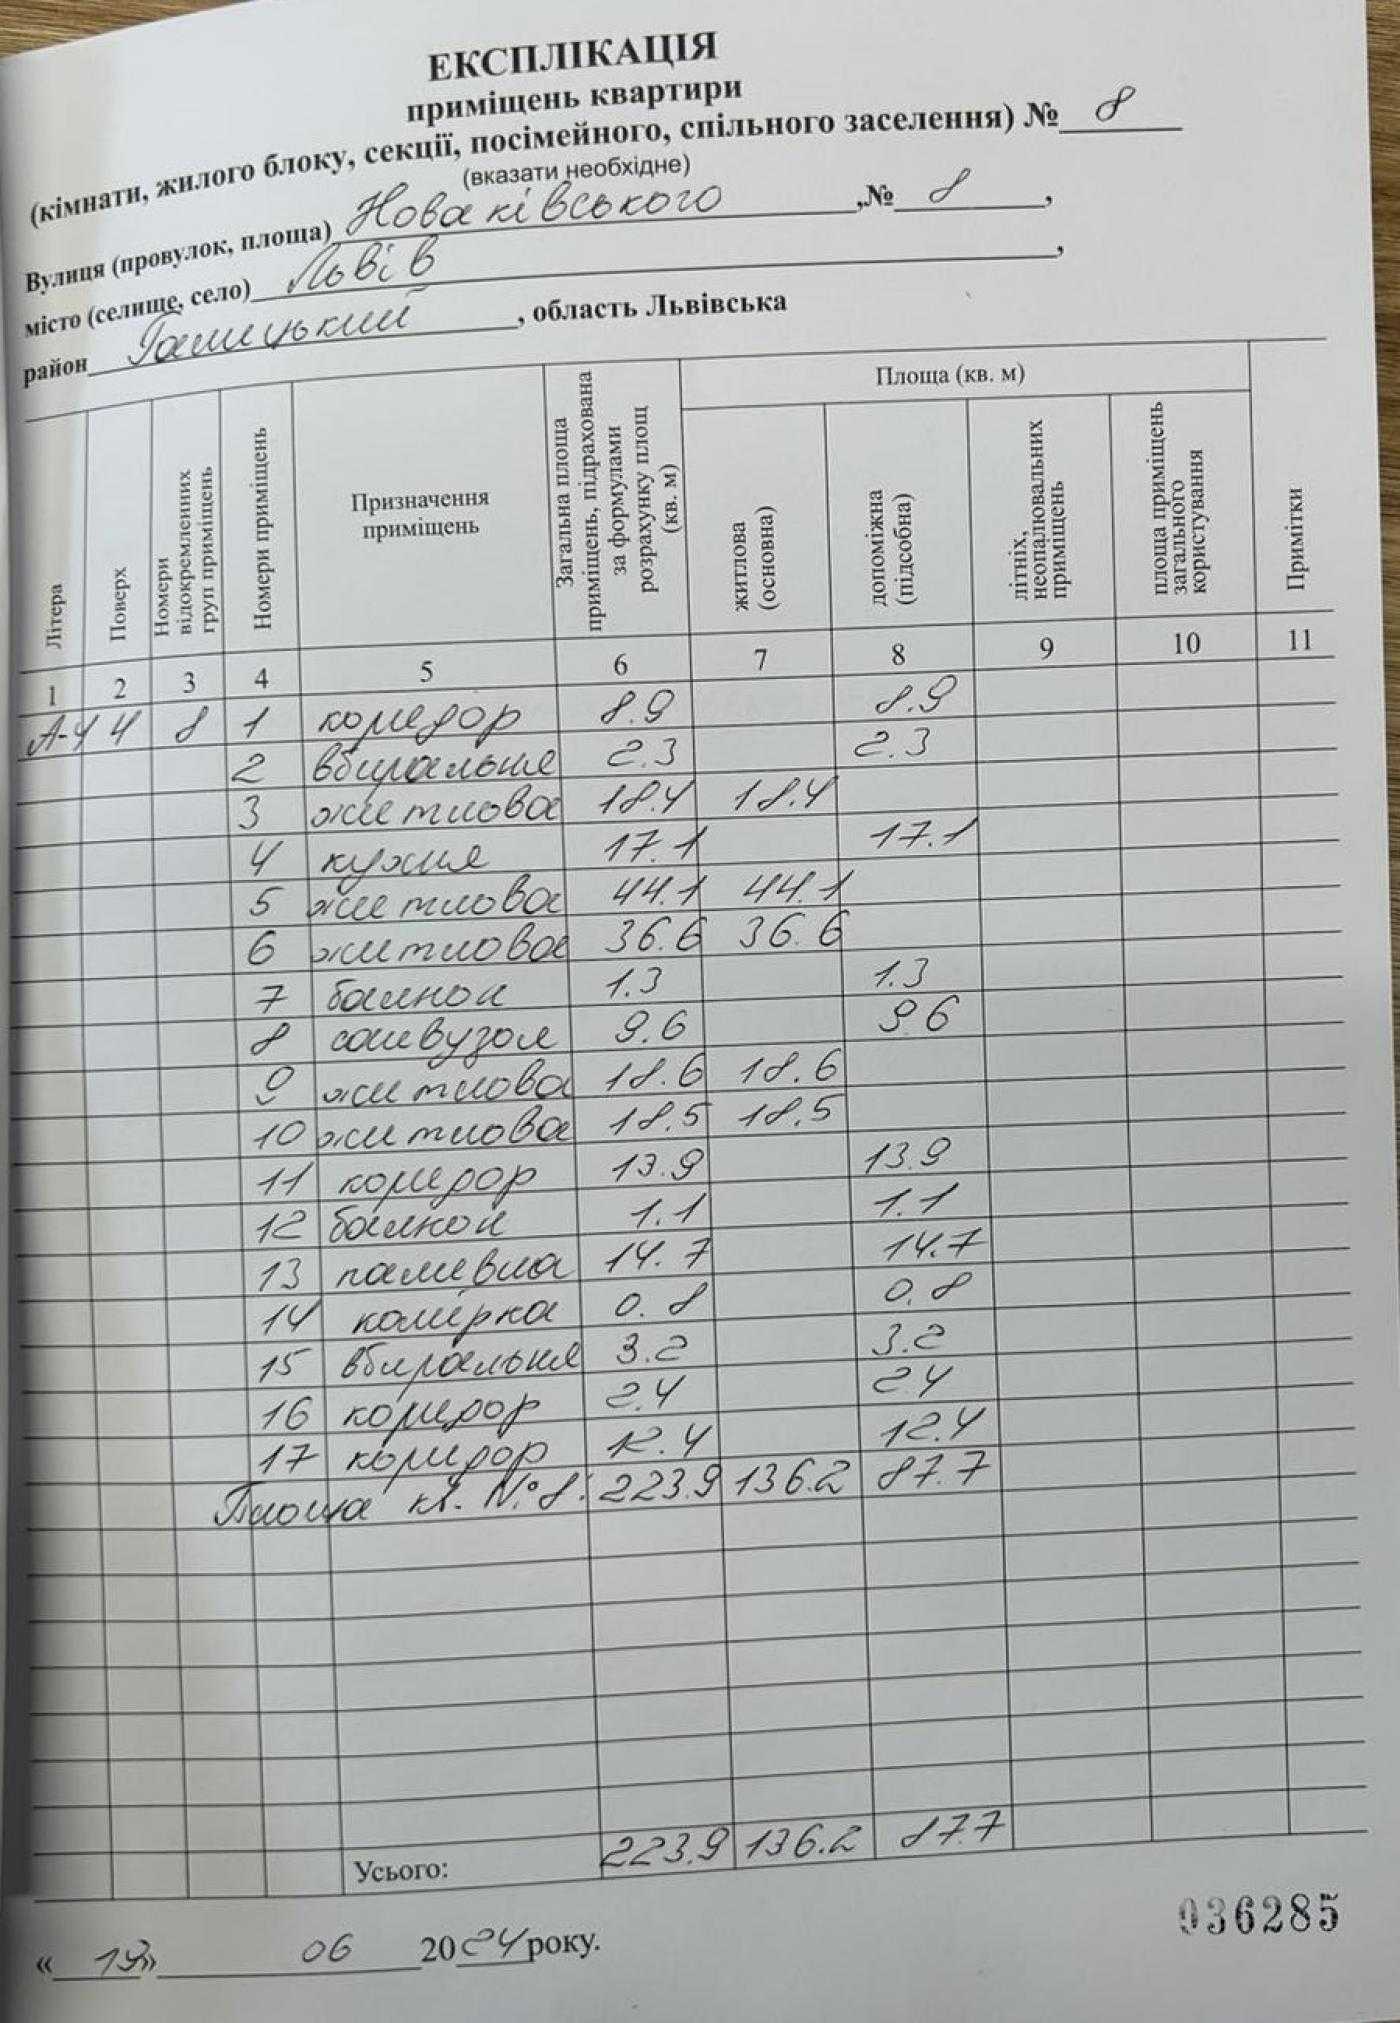 ЕКСПЛІКАЦІЯ
приміщень квартири
(кімнати, жилого блоку, секції, посімейного, спільного заселення) № 8
(вказати необхідне)
Вулиця (провулок, площа) Новаківського ,№ 8 ,
місто (селище, село) Львів ,
район Галицький , область Львівська
Літера Поверх Номери відокремленних груп приміщень Номери приміщень Призначення приміщень Загальна площа приміщень, підрахована за формулами розрахунку площ (кв. м) Площа (кв. м) житлова (основна) допоміжна (підсобна) літніх, неопалювальних приміщень площа приміщень загального користування Примітки
1 2 3 4 5 6 7 8 9 10 11
А-4 4 8 1 коридор 8.9 8.9
2 вбиральня 2.3 2.3
3 житлова 18.4 18.4
4 кухня 17.1 17.1
5 житлова 44.1 44.1
6 житлова 36.6 36.6
7 балкон 1.3 1.3
8 санвузол 9.6 9.6
9 житлова 18.6 18.6
10 житлова 18.5 18.5
11 коридор 13.9 13.9
12 балкон 1.1 1.1
13 паливна 14.7 14.7
14 комірка 0.8 0.8
15 вбиральня 3.2 3.2
16 коридор 2.4 2.4
17 коридор 12.4 12.4
Площа кв. №8: 223.9 136.2 87.7
Усього: 223.9 136.2 87.7
036285
« 19 » 06 2024 року.